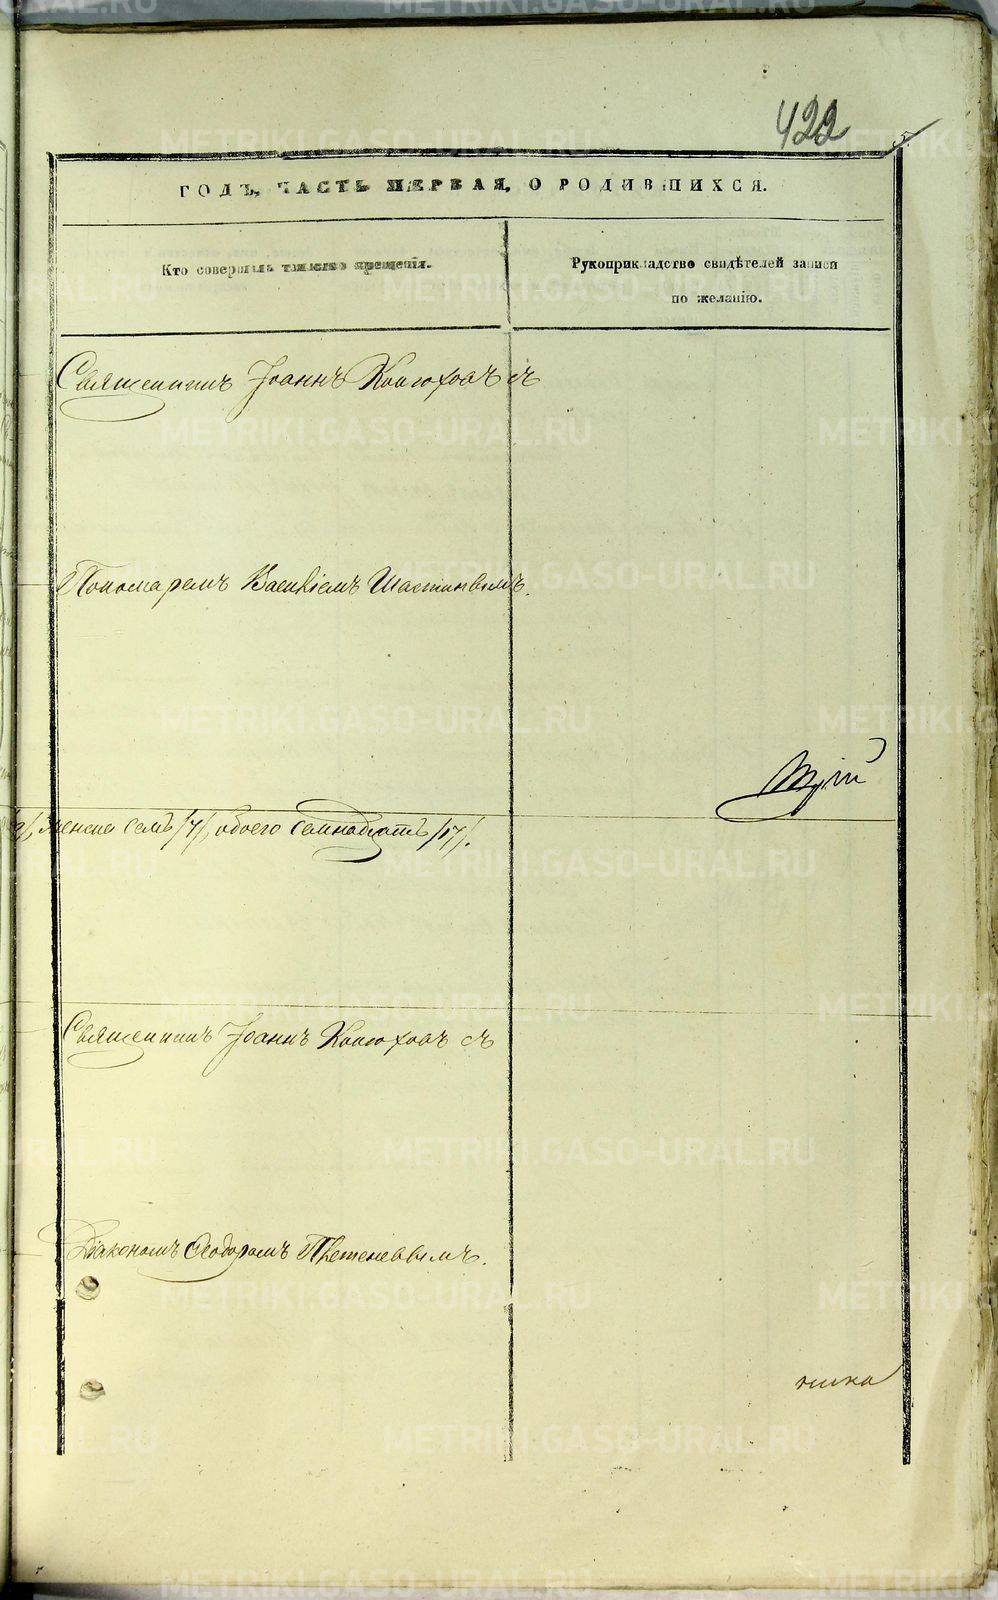 422
ГОДЪ, ЧАСТЬ ПЕРВАЯ, О РОДИВШИХСЯ.
Кто совершалъ таинство крещенія.
Рукоприкладство свидѣтелей записи
по желанію.
Священникъ Іоаннъ Конюховъ съ
Пономаремъ Василіемъ
женска семь /7/, обоего семнадцать /17/.
Священникъ Іоаннъ Конюховъ съ
Діакономъ Ѳеодоромъ
METRIKI.GASO-URAL.RU